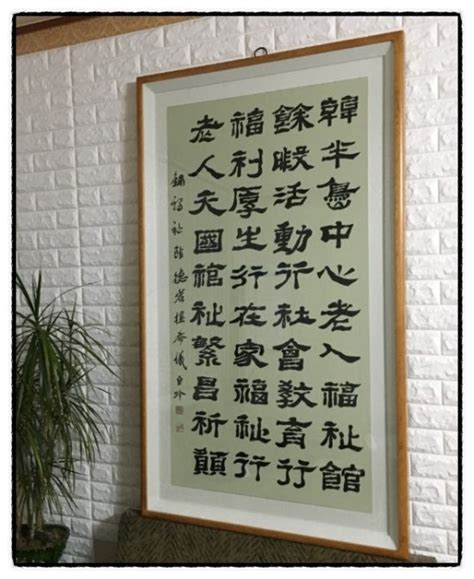 韓半島中心老人福祉館
餘暇活動行社會敎育行
福利厚生行在家福祉行
老人天國福祉繁昌祈願